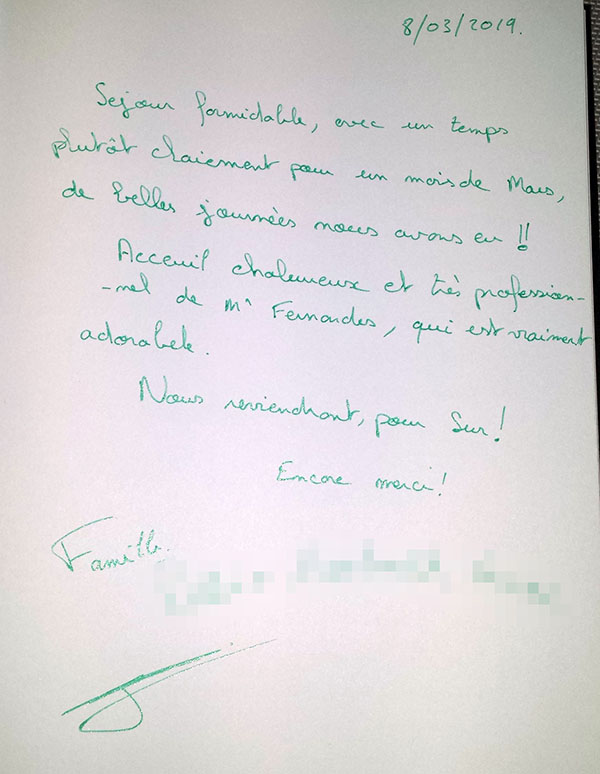 8/03/2019.
Sejour formidable, avec un temps
plutôt claiement pour un mois de Mars,
de belles journées nous avons eu !!
Acceuil chaleureux et très profession-
-nel de Mr Fernandes, qui est vraiment
adorabele.
Nous reviendront, pour Sur !
Encore merci !
Famille